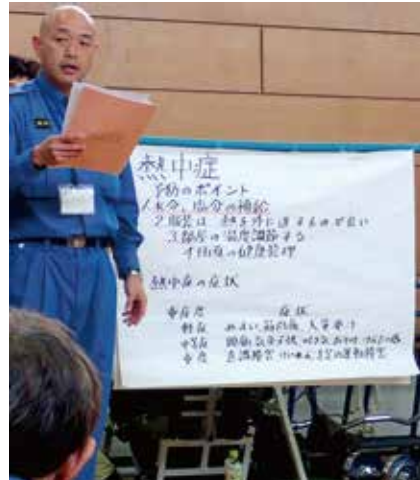 熱中症
予防のポイント
1 水分、塩分の補給
2 服装は 熱を外に逃すものが良い
3 部屋の温度調節する
4 の健康管理
熱中症の症状
重症度 症状
軽症 めまい 筋肉痛 大量発汗
中等症 頭痛 気分不快 吐き気 おう吐
重症 意識障害 けいれん 運動障害